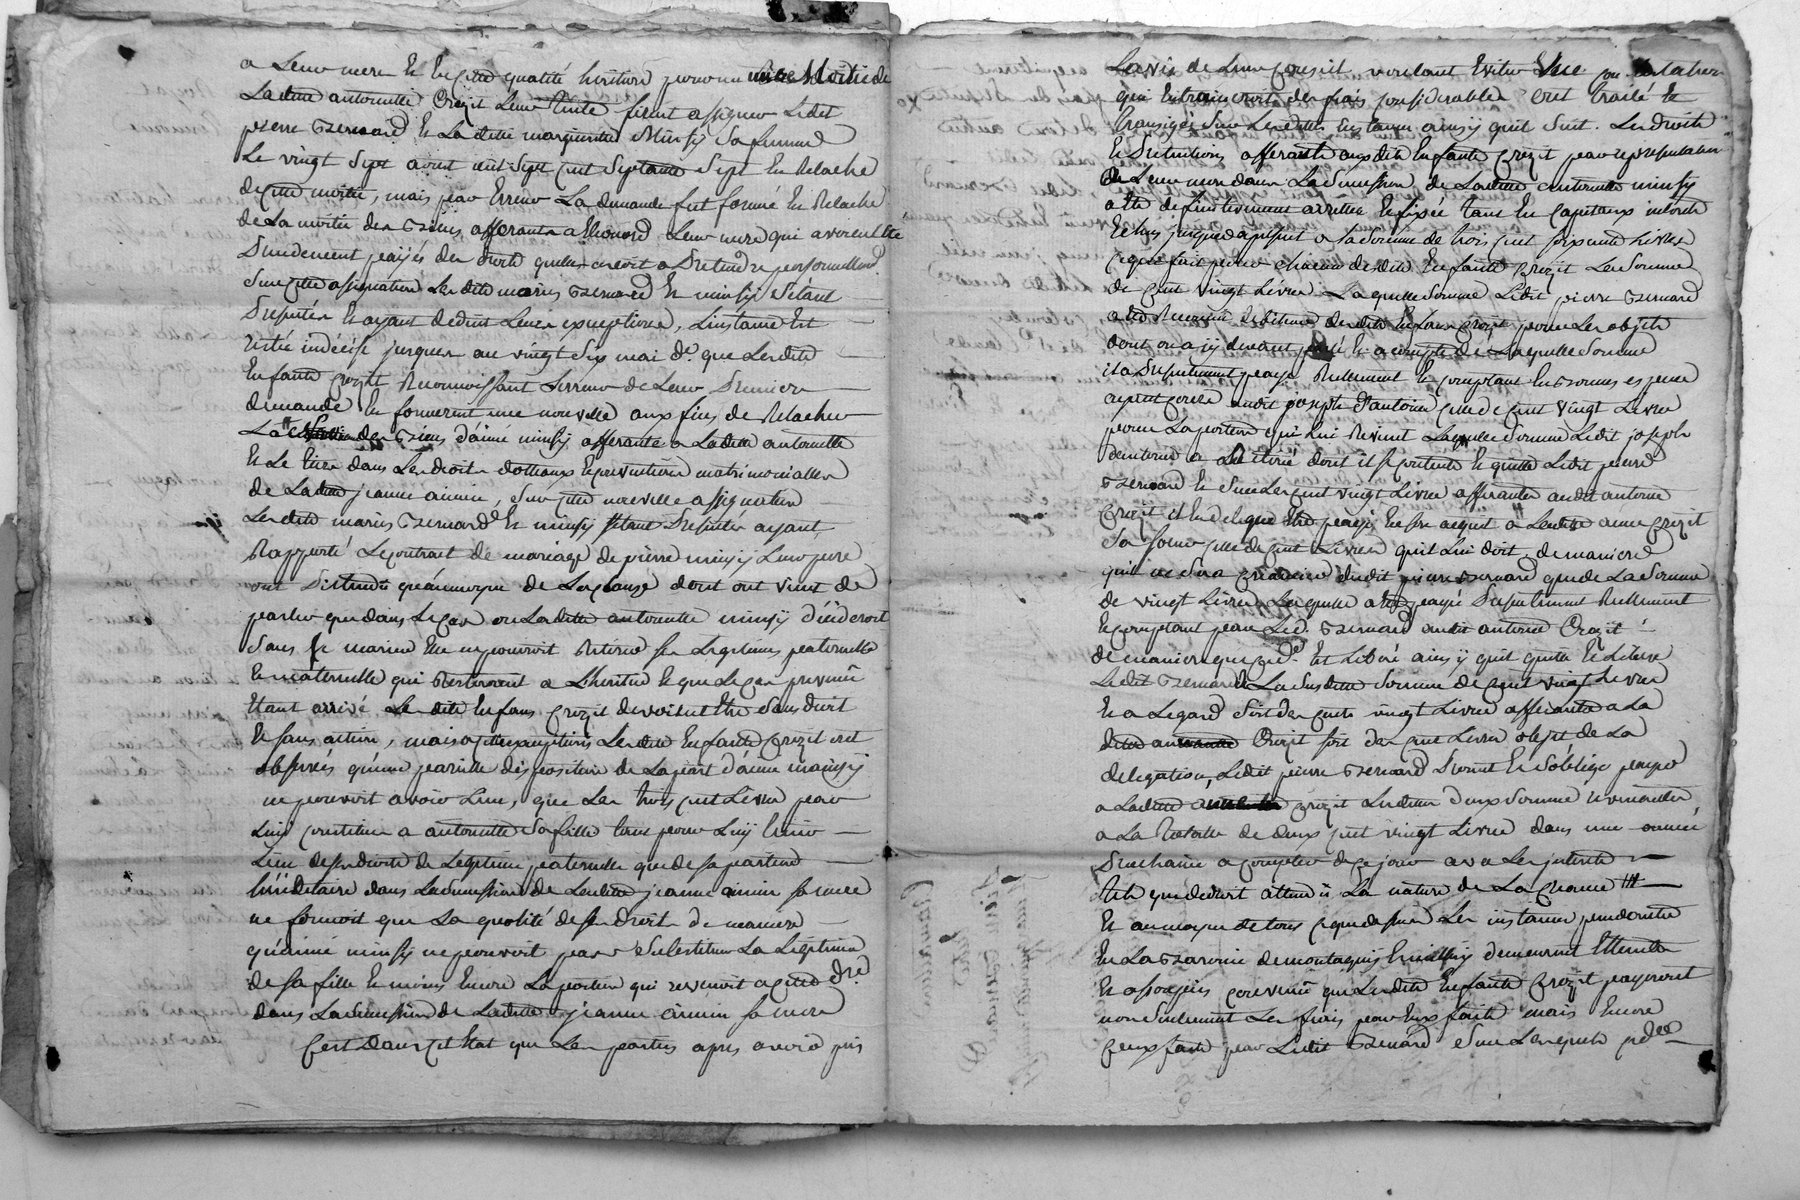 a Leur mere Et En cette qualité heritiers pour une Moitié de
Ladite antoinette Crozit Leur tante firent assigner Ledit
pierre Bernard Et La dite marguerite Minsy Sa femme
Le vingt Sept avril mil Sept cent Septante Sept En Relache
de cette moitié, mais par Erreur La demande fut formé En Relache
de La moitié des Biens afferants a Leur mere qui avoient Eté
payés des droits quelle avoit a pretendre personnellement
Sur cette assignation Les dits mariés Bernard Et minsy S'etant
presentés Et ayant deduit Leurs exceptions, Linstance Est
restée indécise jusques au vingt Six mai dr que Lesdits
Enfants Crozit Reconnoissant Lerreur de Leur premiere
demande En formerent une nouvelle aux fins de Relacher
La des Biens d'aimé minsy afferante a Ladite antoinette
Et Le tiers dans Les droits dottaux Et conventions matrimonialles
de Ladite jeanne aimin, Sur cette nouvelle assignation
Lesdits mariés Bernard Et minsy S'etant presentés ayant
Rapporté Le contrat de mariage de pierre minsy Leur pere
ont pretendu qu'au moyen de La clause dont ont vient de
parler que dans Le cas ou Ladite antoinette minsy décideroit
Sans Se marier Elle ne pourroit Retirer Ses Legitimes paternelle
Et maternelle qui Resteroient a Lheritier Et que Le cas prevenu
Etant arrivé Les dits Enfans Crozit devoient Etre Sans droit
Et Sans action, mais a cette exceptions Lesdits Enfants Crozit ont
observés qu'une pareille disposition de La part d'aimé minsy
ne pouvoit avoir Lieu, que Les trois cent Livres par
Luy constitué a antoinette Sa fille tant pour Luy tenir
Lieu de Ses droits de Legitime paternelle que de Sa portion
héréditaire dans La Succession de Ladite jeanne aimin Sa mere
ne formoit que La qualité de Ses droits de maniere
qu'aimé minsy ne pouvoit pas Substituer La Legitime
de Sa fille Et moins Encore La portion qui revenoit a cette dre
dans La Succession de Ladite jeanne aimin Sa mere
C'est Dans cet Etat que Les parties apres avoir pris
Lavis de Leur Conseil voulant Eviter une
qui Entraineroit des frais considerables ont traité Et
transigé Sur Lesdittes instances ainsy quil Suit. Les droits
Et pretentions afferante aux dits Enfants Crozit par representation
de Leur mere dans La Succession de Ladite antoinette minsy
a Eté definitivement arretée Et fixée tant En Capitaux interets
Et tous jusques a present a La Somme de trois cent Soixante Livres
ce que fait pour chacun desdits Enfants Crozit La Somme
de Cent vingt Livres Laquelle Somme Ledit pierre Bernard
a Eté Reconnu debiteur desdits Enfans Crozit pour Les objets
dont on a cy devant parlé Et a compte de Laquelle Somme
il a presentement payé Reellement Et comptant En Bonnes especes
ayant Cours audit joseph d'antoine celle de Cent vingt Livres
pour La portion qui Lui Revient Laquelle Somme Ledit joseph
d'antoine a Retiré dont il Se contente Et quitte Ledit pierre
Bernard Et Sur Les Cent vingt Livres afferantes audit antoine
Crozit il En delegue Etre payé En Son acquit a Ladite Crozit
Sa Soeur celle de Cent Livres quil Lui doit, de maniere
quil ne Sera creancier dudit pierre Bernard que de La Somme
de vingt Livres Laquelle a Eté payé presentement Reellement
Et comptant par Led. Bernard audit antoine Crozit
de maniere que ce dr. Est Libéré ainsy quil quitte Et Libere
Ledit Bernard de La Susditte Somme de Cent vingt Livres
Et a Legard Soit des Cents vingt Livres afferantes a La
ditte Crozit Soit des Cent Livres objet de La
delegation, Ledit pierre Bernard promet Et S'oblige payer
a Laditte Crozit Lesdittes deux Sommes revenantes
a La Totalle de deux Cent vingt Livres dans une année
prochaine a compter de ce jour avec Les interets
tels que de droit attendu La nature de La Creance
Et au moyen de tous ce que dessus Les instances pendantes
En La Baronnie de montaguy demeurent Etteintes
Et assoupies convenu que Lesdits Enfants Crozit payeront
non Seulement Les frais par Eux faits mais Encore
ceux faits par Ledit Bernard Sur Lesquels